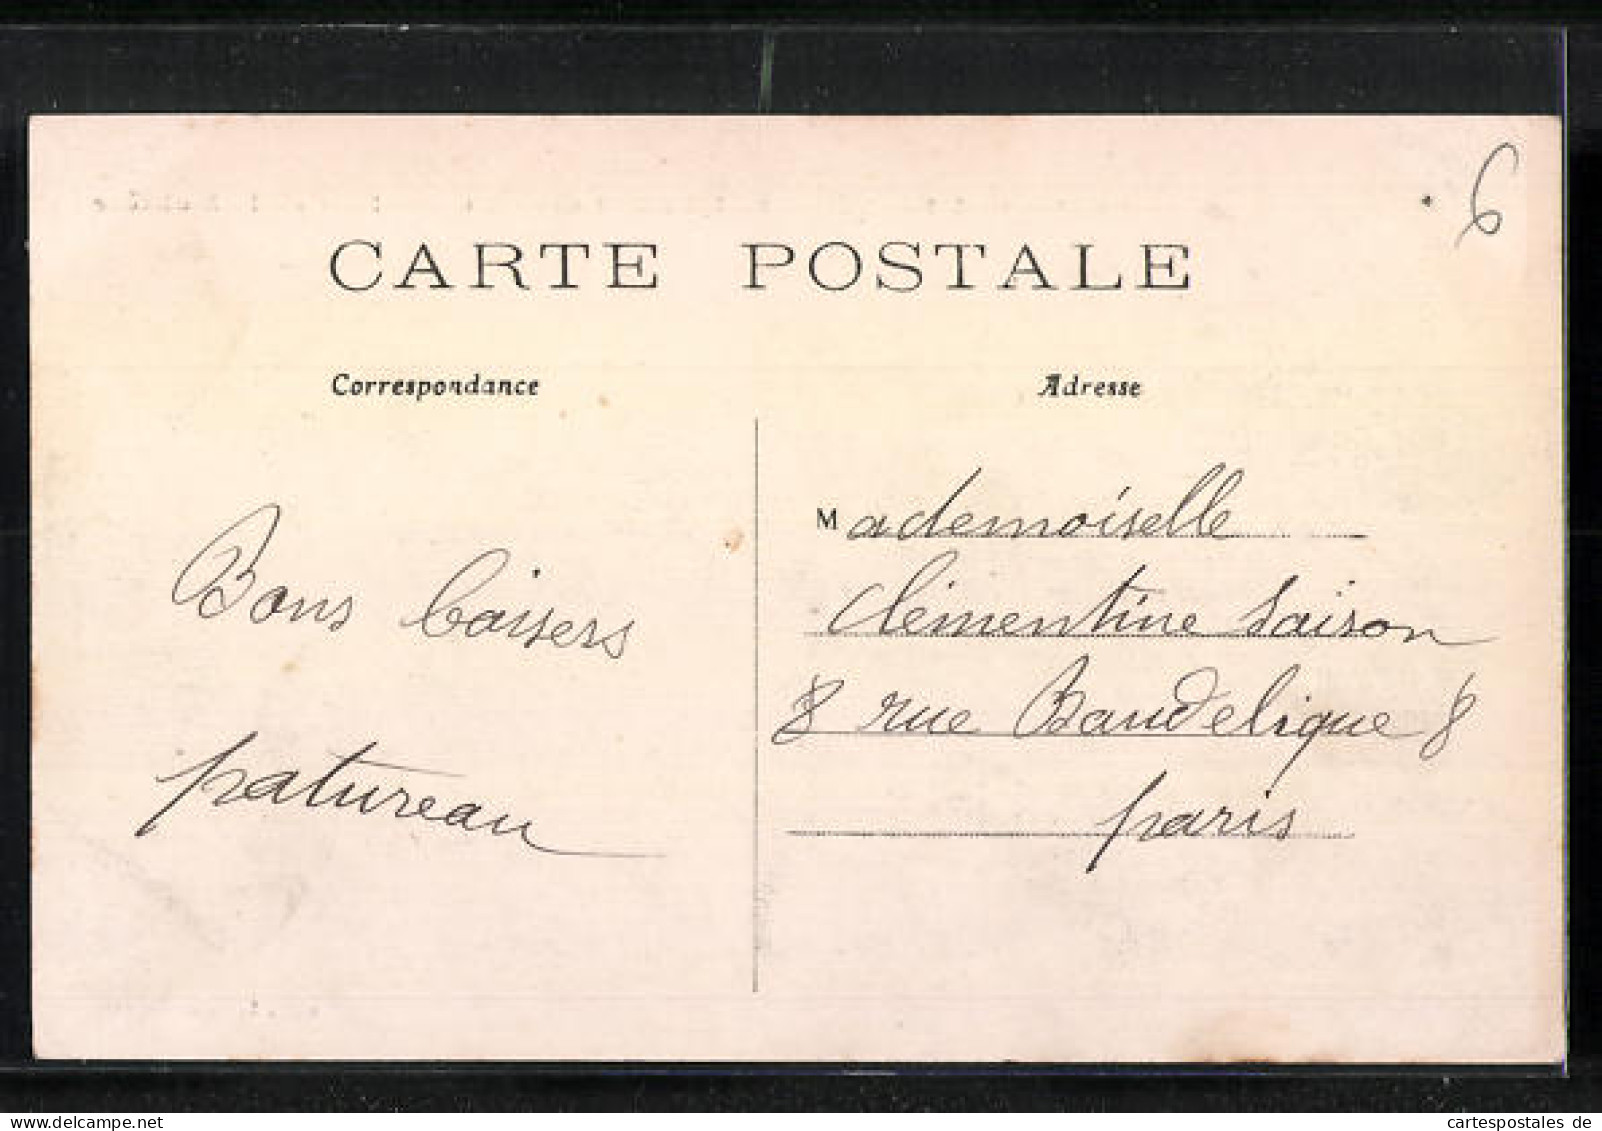 6
CARTE POSTALE
Correspondance
Adresse
Bons baisers
patureau
Mademoiselle
Clémentine Saison
8 rue Baudelique 8
paris
cartespostales de